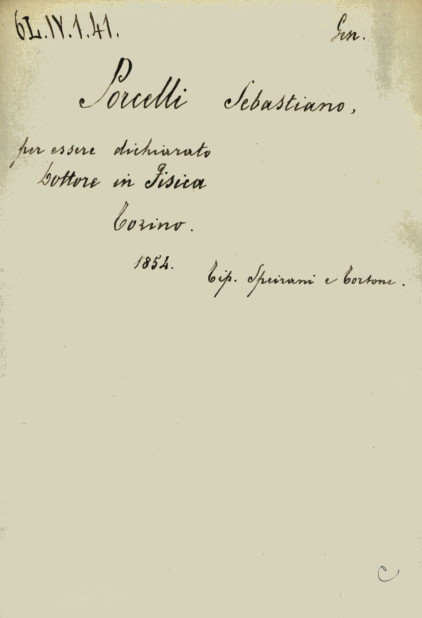 6L.IV.1.41. Gen.
Porcelli Sebastiano,
per essere dichiarato
Dottore in Fisica
Torino.
1854. Tip. Speirani e Tortone.
C